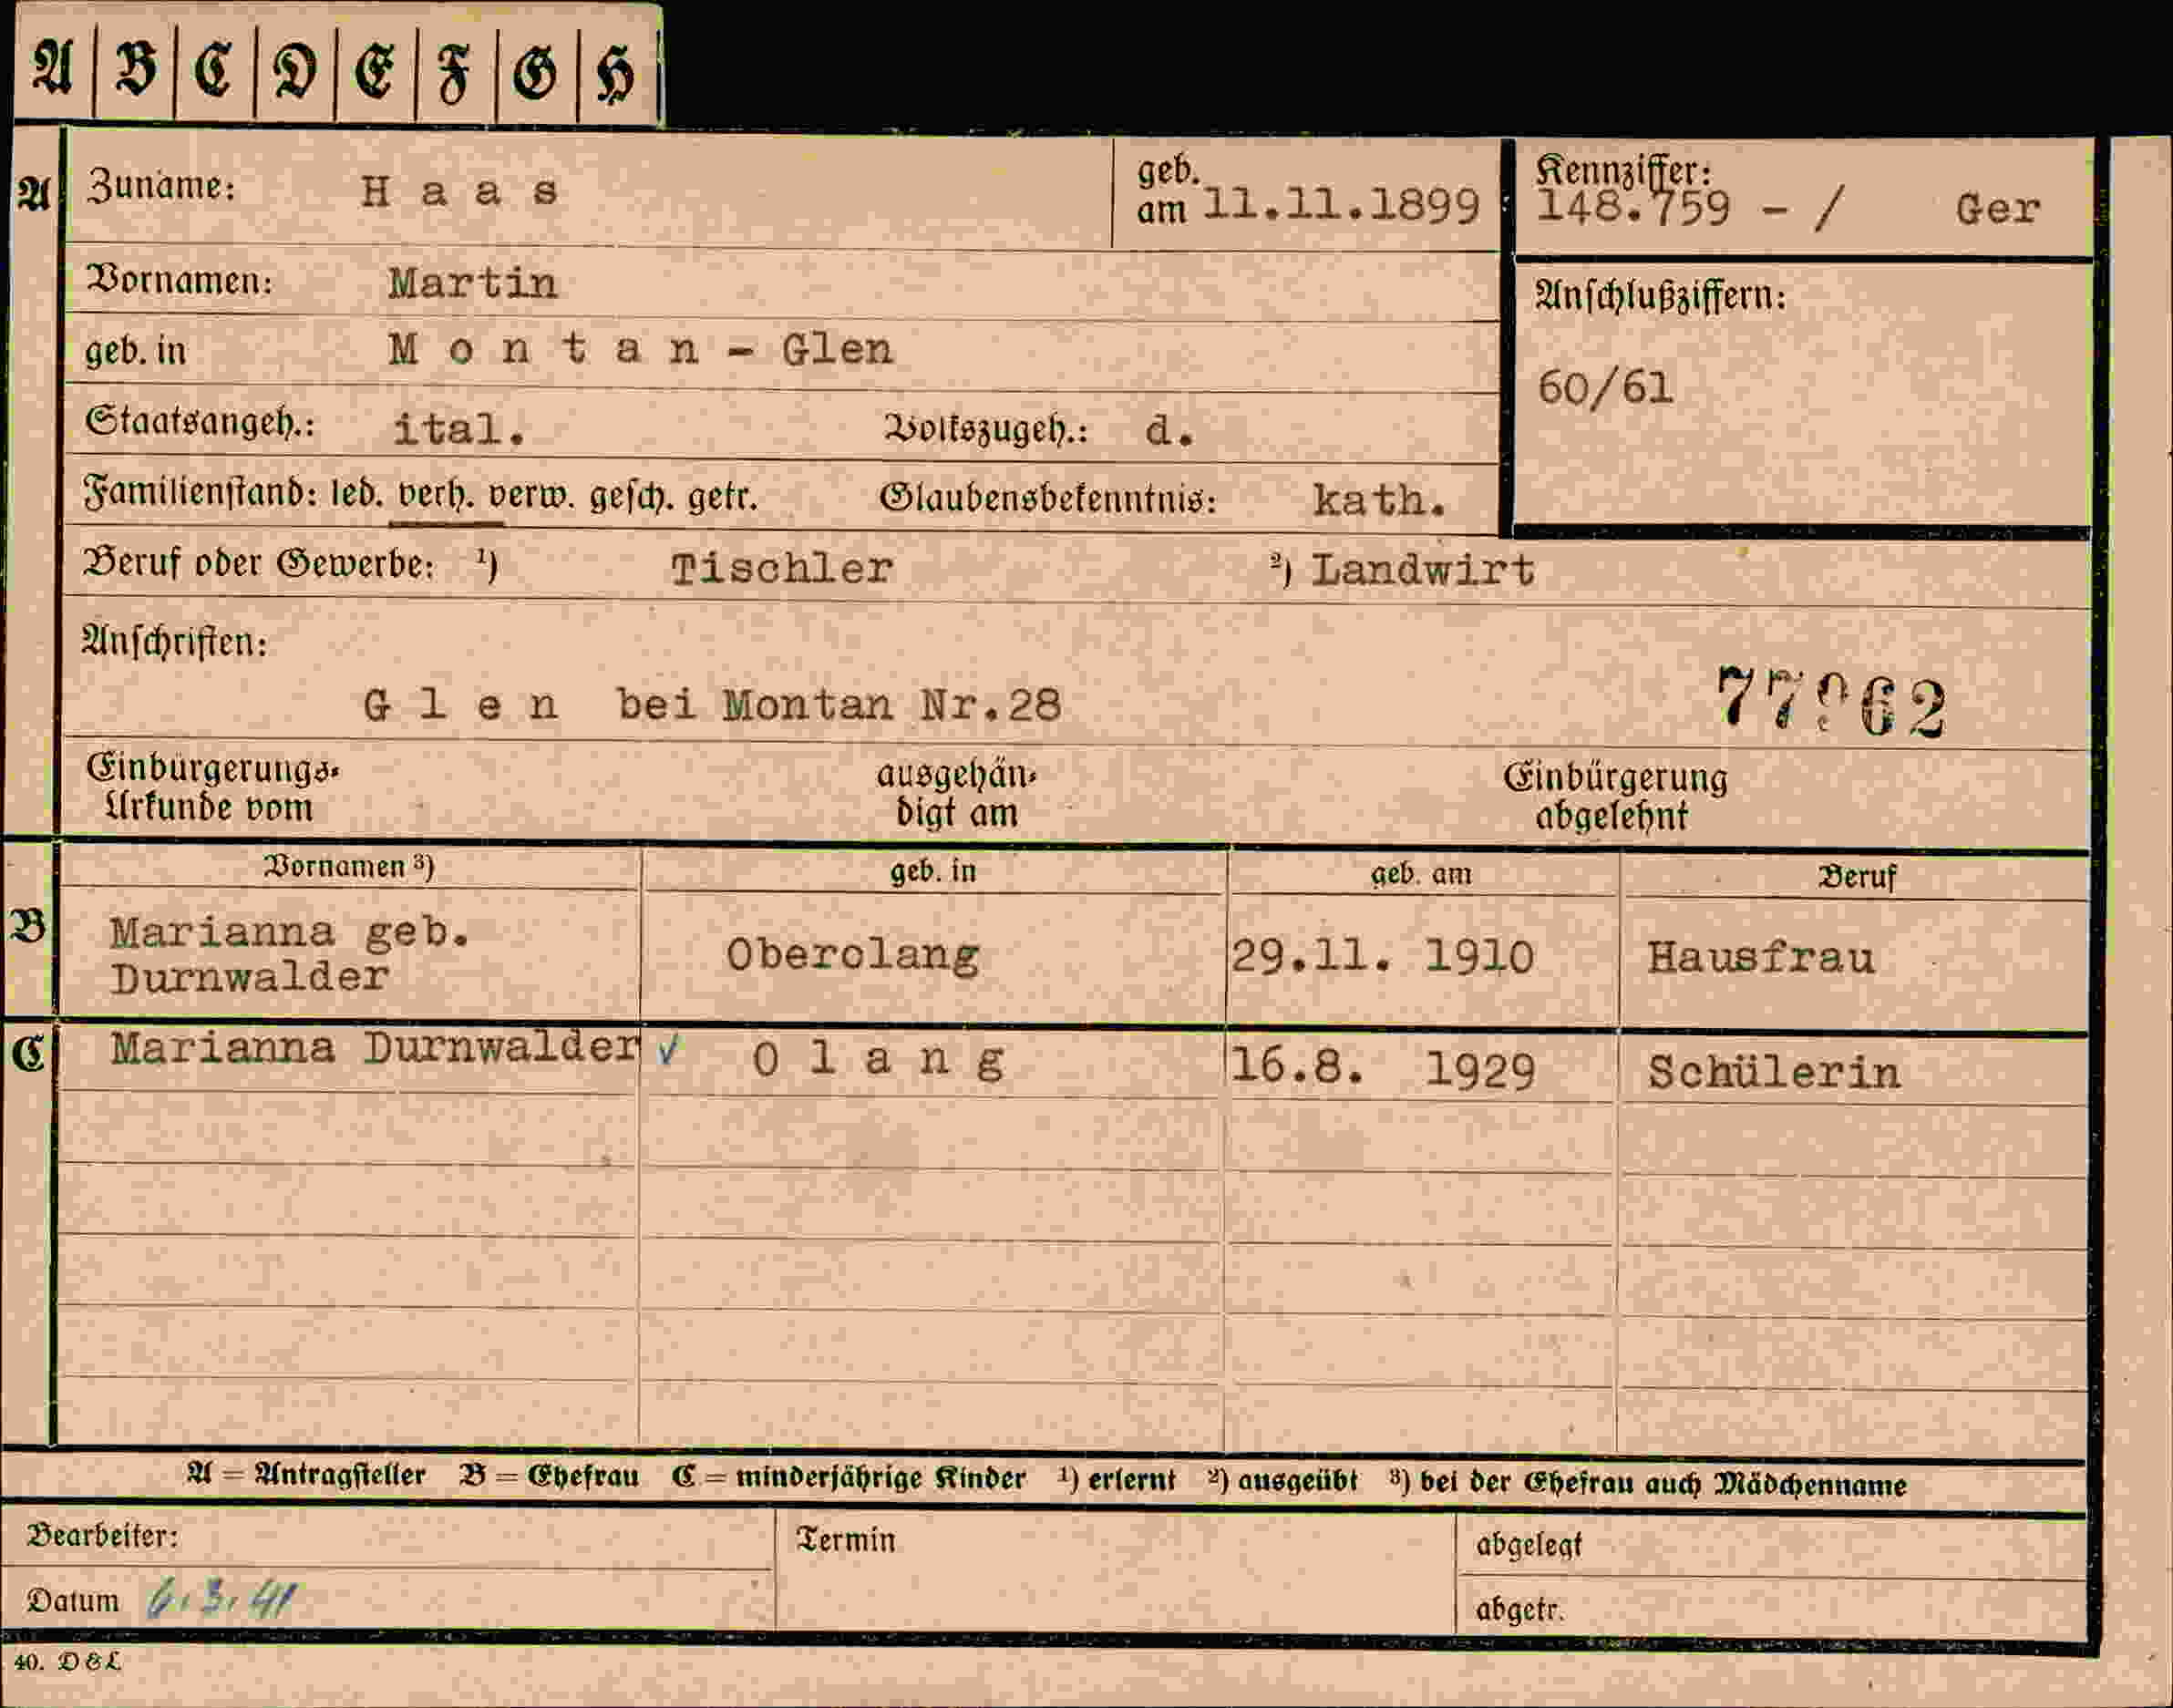 A B C D E F G H
A Zuname: Haas geb. am 11.11.1899 Kennziffer: 148.759 - / Ger
Vornamen: Martin
Anschlußziffern:
geb. in Montan - Glen
60/61
Staatsangeh.: ital. Volkszugeh.: d.
Familienstand: led. verh. verw. gesch. getr. Glaubensbekenntnis: kath.
Beruf oder Gewerbe: ¹) Tischler ²) Landwirt
Anschriften:
Glen bei Montan Nr.28
Einbürgerungs- ausgehän- Einbürgerung
Urkunde vom digt am abgelehnt
Vornamen ³) geb. in geb. am Beruf
B Marianna geb.
Durnwalder Oberolang 29.11. 1910 Hausfrau
C Marianna Durnwalder ✓ Olang 16.8. 1929 Schülerin
A = Antragsteller B = Ehefrau C = minderjährige Kinder ¹) erlernt ²) ausgeübt ³) bei der Ehefrau auch Mädchenname
Bearbeiter: Termin abgelegt
Datum 6.3.41 abgetr.
40. D & L